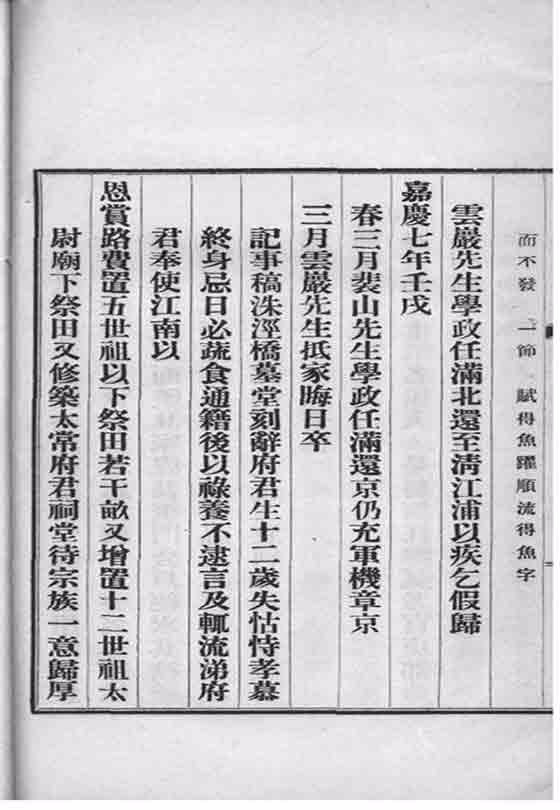 而不發 一節 賦得魚躍順流得魚字
雲巖先生學政任滿北還至淸江浦以疾乞假歸
嘉慶七年壬戌
春三月裴山先生學政任滿還京仍充軍機章京
三月雲巖先生抵家晦日卒
記事稿洙涇橋墓堂刻辭府君生十二歲失怙恃孝慕
終身忌日必蔬食通籍後以祿養不逮言及輒流涕府
君奉使江南以
恩賞路費置五世祖以下祭田若干畝又增置十二世祖太
尉廟下祭田又修築太常府君祠堂待宗族一意歸厚